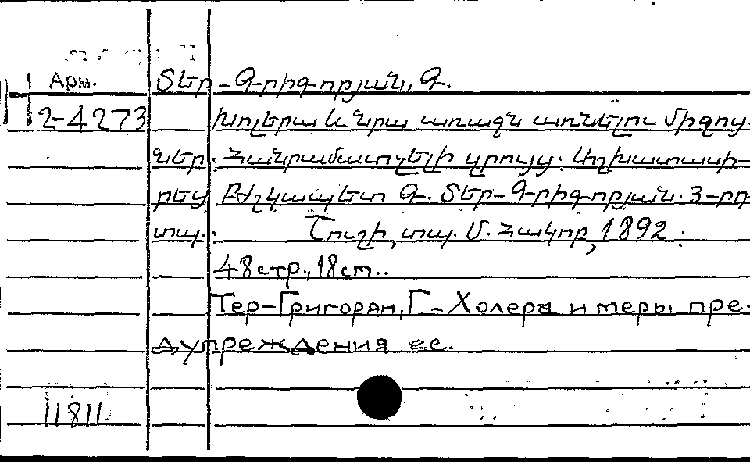 Арм. Տեր-Գրիգորյան, Գ.
2-4273 Խոլերա և նրա առաջն առնելու միջոց-
ներ. Հանրամատչելի զրույց. Աշխատասի-
րեց Բժշկապետ Գ. Տեր-Գրիգորյան. 3-րդ
տպ. Շուշի, տպ. Մ. Հակոբ, 1892.
48стр., 18см..
Тер-Григорян, Г. - Холера и меры пре-
дупреждения ее.
11811